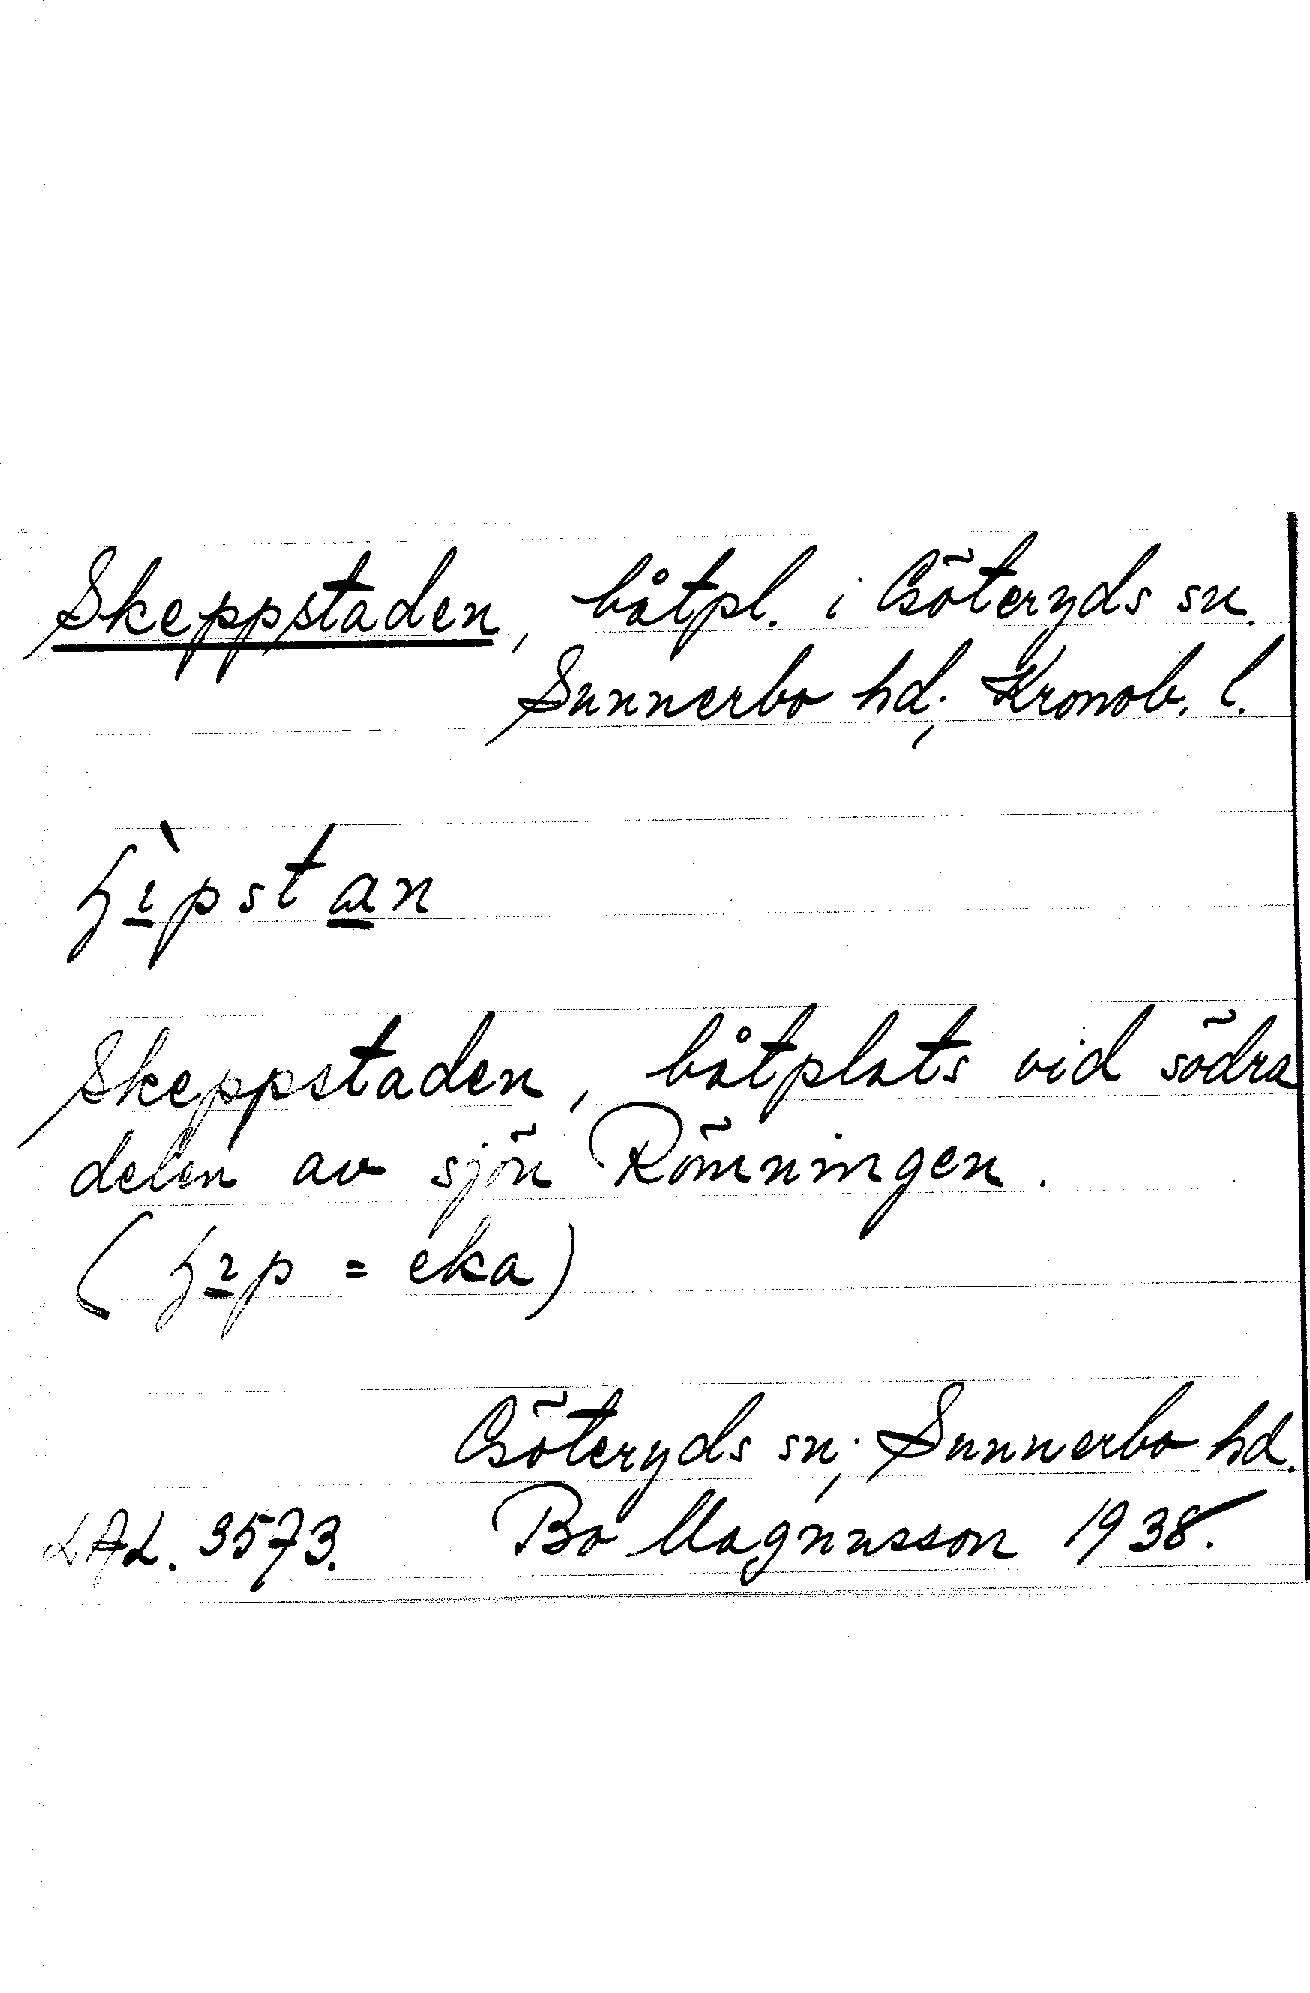 Skeppstaden, båtpl. i Göteryds sn.
Sunnerbo hd; Kronob. l.
Skeppstaden, båtplats vid södra
delen av sjön Römningen.
= eka)
Göteryds sn; Sunnerbo hd.
LAL. 3573. Bo Magnusson 1938.